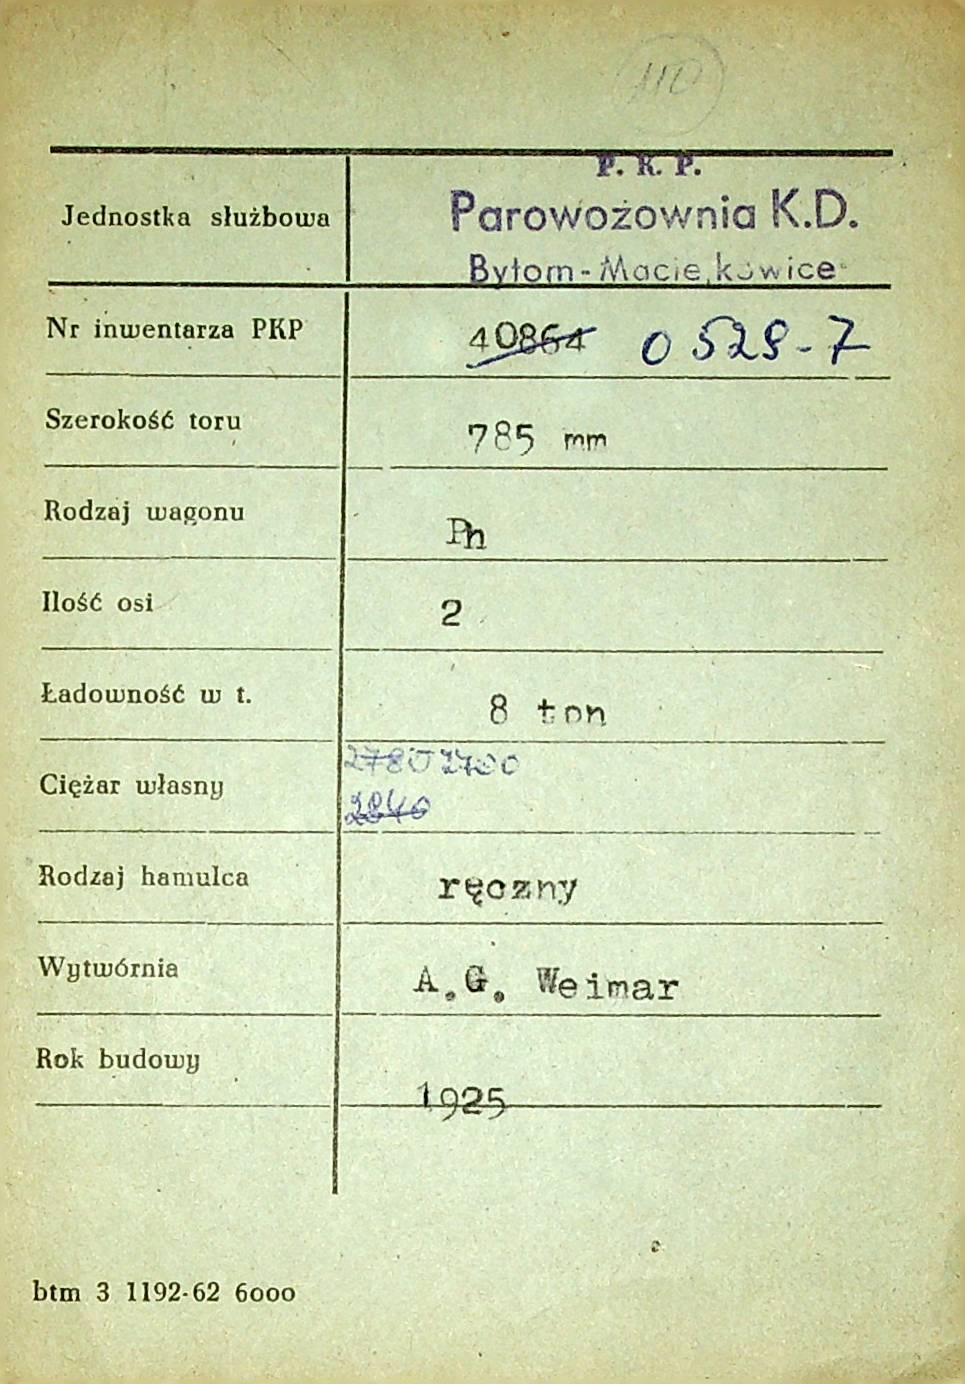 110
P. K. P.
Jednostka służbowa Parowozownia K.D.
Bytom-Maciejkowice
Nr inwentarza PKP 40864 0529-7
Szerokość toru 785 mm
Rodzaj wagonu Ph
Ilość osi 2
Ładowność w t. 8 ton
2780 2700
Ciężar własny
2840
Rodzaj hamulca ręczny
Wytwórnia A.G. Weimar
Rok budowy 1925
btm 3 1192-62 6000